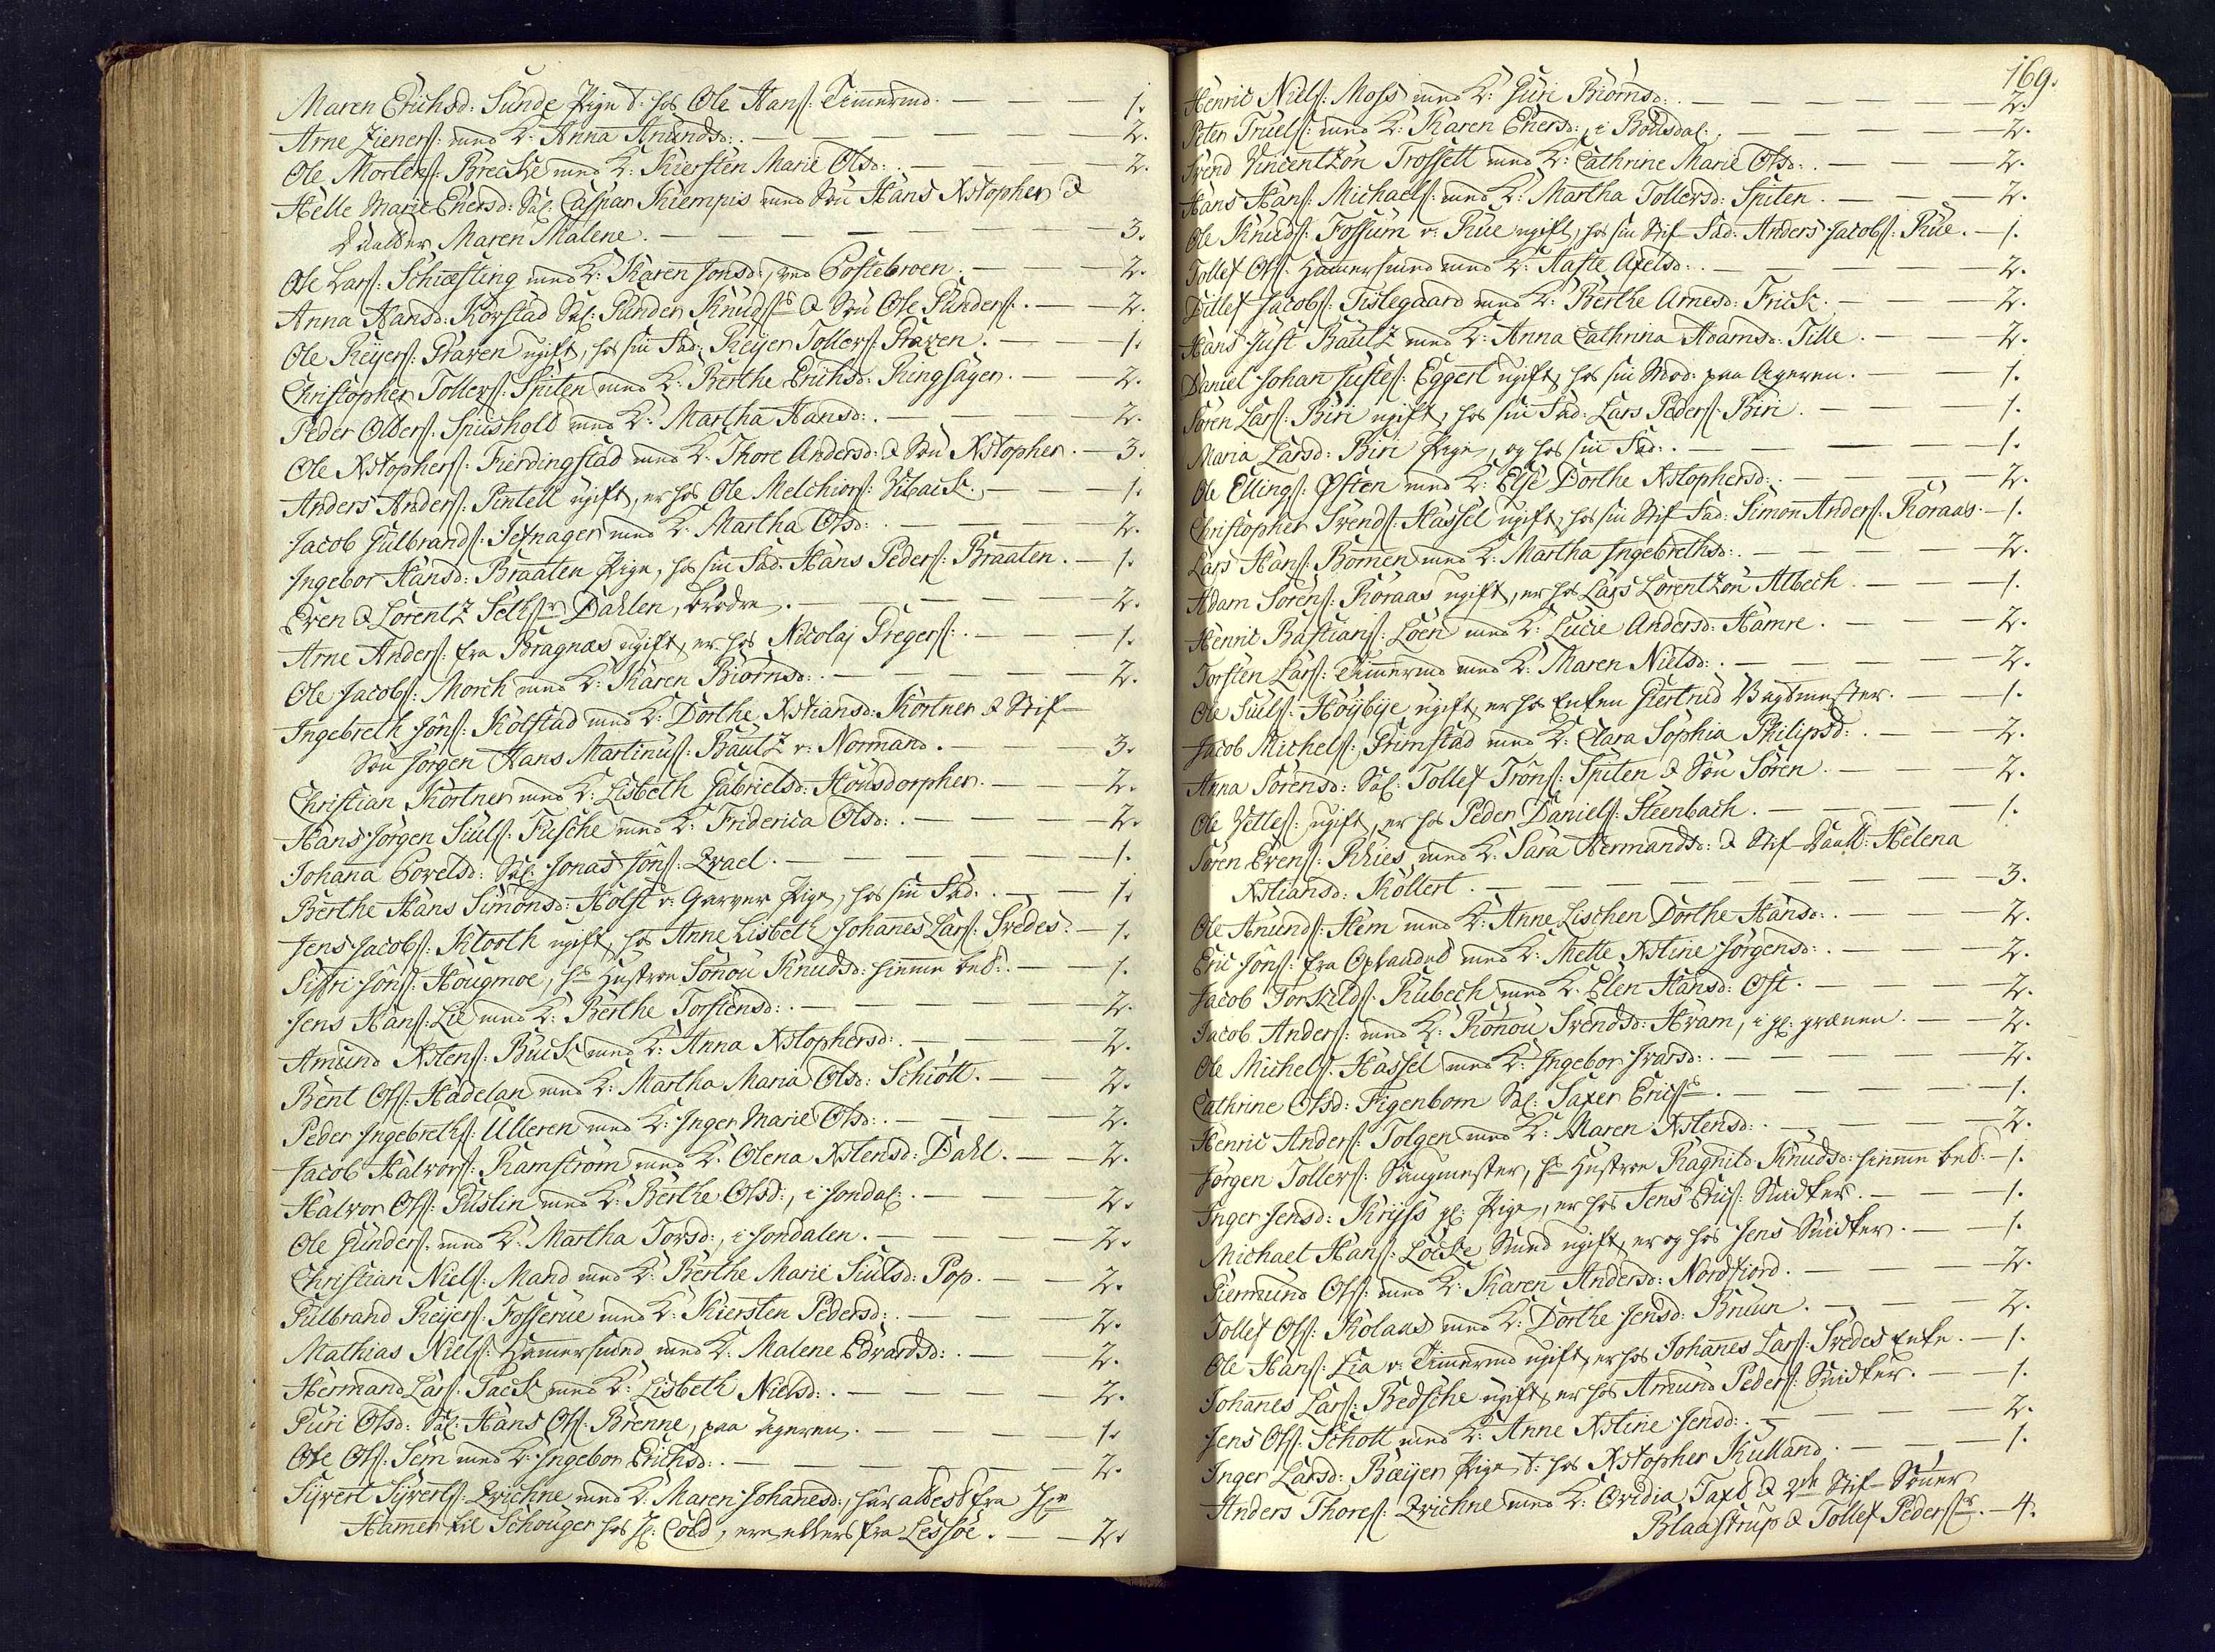 Maren Erichsd: Sunde Pige t: hos Ole Hans: Timmermd. — 1.
Arne Zieners: med K: Anna Anundsd: — 2.
Ole Mortens: Brecke med K: Kiersten Marie Olsd: — 2.
Helle Marie Enersd: Sal: Caspar Kiempis med Søn Hans Xstopher &
Daatter Maren Malene. — 3.
Ole Lars: Schiæsting med K: Karen Jonsd:, ved Costebroen. — 2.
Anna Hansd: Korstad Sal: Gunder Knuds: & Søn Ole Gunders: — 2.
Ole Reijers: Graven ugift, hos sin Fad: Reijer Tollers: Graven. — 1.
Christopher Tollers: Spiten med K: Berthe Erichsd: Ringsager. — 2.
Peder Olders: Spushold med K: Martha Hansd: — 2.
Ole Xstophers: Fierdingstad med K: Thore Andersd: & Søn Xstopher. — 3.
Anders Anders: Pintell ugift, er hos Ole Melchiors: Viback. — 1.
Jacob Gulbrands: Jefnager med K: Martha Olsd: — 2.
Ingebor Hansd: Braaten Pige, hos sin Fad: Hans Peders: Braaten. — 1.
Even & Lorentz Dahlen, brødre. — 2.
Arne Anders: fra Bragnæs ugift, er hos Nicolaj Gregers: — 1.
Ole Jacobs: Morch med K: Karen Biørnsd: — 2.
Ingebreth Jøns: Kolstad med K: Dorthe Xstiansd: Kortner & Stif-
Søn Jørgen Hans Martinus: Bautz v: Normand. — 3.
Christian Kortner med K: Lisbeth Gabrielsd: Housdorpher. — 2.
Hans Jørgen Siuls: Fusche med K: Friderica Olsd: — 2.
Johanna Povelsd: Sal: Jonas Jøns: Qvael. — 1.
Berthe Hans Simonsd: Holst v: Garver Pige, hos sin Fad: — 1.
Jens Jacobs: Klooth ugift, hos Anne Lisbeth Johannes Lars: Svedes. — 1.
Siffri Jøns: Hougmoe, hs Hustroe Sønou Knudsd: hiemme bet: — 1.
Jens Hans: Lie med K: Berthe Torstensd: — 2.
Amund Xstens: Buck med K: Anna Xstophersd: — 2.
Bent Ols: Hadelan med K: Martha Maria Olsd: Schiøtt. — 2.
Peder Ingebreths: Ulleren med K: Inger Marie Olsd: — 2.
Jacob Halvors: Ramstrøm med K: Olena Xstensd: Dahl. — 2.
Halvor Ols: Guslin med K: Berthe Olsd:, i Jondal: — 2.
Ole Gunders: med K: Martha Torsd:, i Jondalen. — 2.
Christian Niels: Mand med K: Berthe Marie Siulsd: Pop. — 2.
Gulbrand Reijers: Fosserue med K: Kiersten Pedersd: — 2.
Mathias Niels: Hammersmed med K: Malene Edvardsd: — 2.
Hermand Lars: Tack med K: Lisbeth Nielsd: — 2.
Guri Olsd: Sal: Hans Ols: Brenne, paa Ageren. — 1.
Ole Ols: Sem med K: Ingebor Erichsd: — 2.
Sijvert Sijverts: Qvichne med K: Maren Johanesd:,
Hammer til Schouger hos Hr: Cold, er ellers fra Lessøe. — 2.
169.
Henric Niels: Moss med K: Guri Biørnsd: — 2.
Peter Truels: med K: Karen Enersd:, i Boudsdal. — 2.
Svend Vincentzøn Trossett med K: Cathrine Marie Olsd: — 2.
Hans Hans: Michaels: med K: Martha Tollersd: Spiten. — 2.
Ole Knuds: Fossum v: Rue ugift, hos sin Stif-Fad: Anders Jacobs: Rue. — 1.
Tollef Ols: Hammersmed med K: Aaste Axelsd: — 2.
Ditlef Jacobs: Tislegaard med K: Berthe Arnesd: Frick. — 2.
Hans Just Bautz med K: Anna Cathrina Adamsd: Tille. — 2.
Daniel Johan Justes: Eggert ugift, hos sin Mod: paa Ageren. — 1.
Søren Lars: Biri ugift, hos sin Fad: Lars Peders: Biri. — 1.
Maria Larsd: Biri Pige, og hos sin Fad: — 1.
Ole Ellings: Østen med K: Else Dorthe Xstophersd: — 2.
Christopher Svends: Hassel ugift, hos sin Stif-Fad: Simon Anders: Roraas. — 1.
Lars Hans: Bommen med K: Martha Ingebrethsd: — 2.
Adam Sørens: Roraas ugift, er hos Lars Lorentzøn Albech — 1.
Henric Bastians: Loen med K: Lucie Andersd: Hamre. — 2.
Torsten Lars: Timmermd med K: Maren Nielsd: — 2.
Ole Siuls: Høijbije ugift, er hos Enken Giertrud Bagsmester. — 1.
Jacob Michels: Grimstad med K: Clara Sophia Philipsd: — 2.
Anna Sørensd: Sal: Tollef Trons: Spiten & Søn Søren. — 2.
Ole Vettes: ugift, er hos Peder Daniels: Steenbach. — 1.
Søren Evens: Rhies med K: Sara Hermandsd: & Stif-Daatt: Helena
Xstiansd: Kollert. — 3.
Ole Anunds: Hem med K: Anne Lischen Dorthe Hansd: — 2.
Eric Jøns: fra Oplandet med K: Mette Xstine Jørgensd: — 2.
Jacob Torkilds: Rubech med K: Elen Hansd: Ost. — 2.
Jacob Anders: med K: Rønou Svendsd: Hvam, i gl: grænen. — 2.
Ole Michels: Hassel med K: Ingebor Ivarsd: — 2.
Cathrine Olsd: Figenbom Sal: Saxer Erics: — 1.
Henric Anders: Tolgen med K: Maren Xstensd: — 2.
Jørgen Tollers: Saugmester, hs Hustroe Ragnild Knudsd: hiemme bet: — 1.
Inger Jensd: Krijss gl: Pige, er hos Jens Erics: Snidker. — 1.
Michael Hans: Løcke Smed ugift, er og hos Jens Snidker. — 1.
Giermund Ols: med K: Karen Andersd: Nordfiord. — 2.
Tollef Ols: Kolaas med K: Dorthe Jensd: Bruun. — 2.
Ole Hans: Lia v: Timmermd ugift, er hos Johannes Lars: Svedes Enke. — 1.
Johannes Lars: Bedsche ugift, er hos Amund Peders: Snidker. — 1.
Jens Ols: Schott med K: Anne Xstine Jensd: — 2.
Inger Larsd: Bæijer Pige t: hos Xstopher Kulland. — 1.
Anders Thores: Qvichne med K: Ovidia Taxd & 2de Stif-Sønner
Blaastrup & Tollef Peders: — 4.